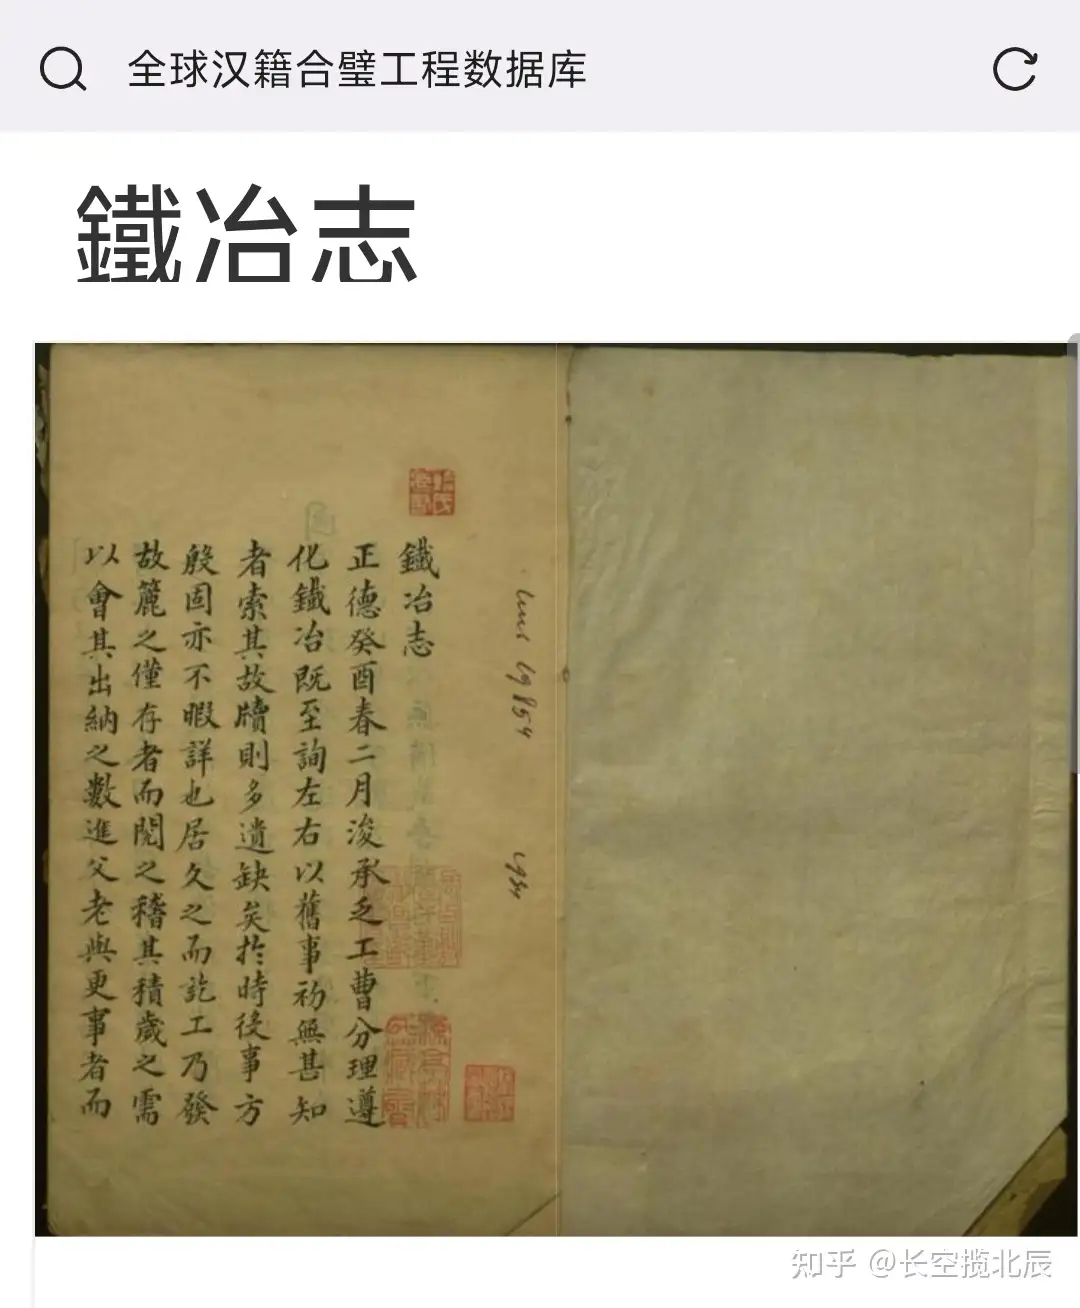 全球汉籍合璧工程数据库
鐵冶志
鐵冶志
正德癸酉春二月浚承乏工曹分理遵
化鐵冶既至詢左右以舊事初無甚知
者索其故牘則多遺缺矣於時後事方
殷固亦不暇詳也居久之而訖工乃發
故簏之僅存者而閱之稽其積歲之需
以會其出納之數進父老與更事者而
知乎 @长空揽北辰